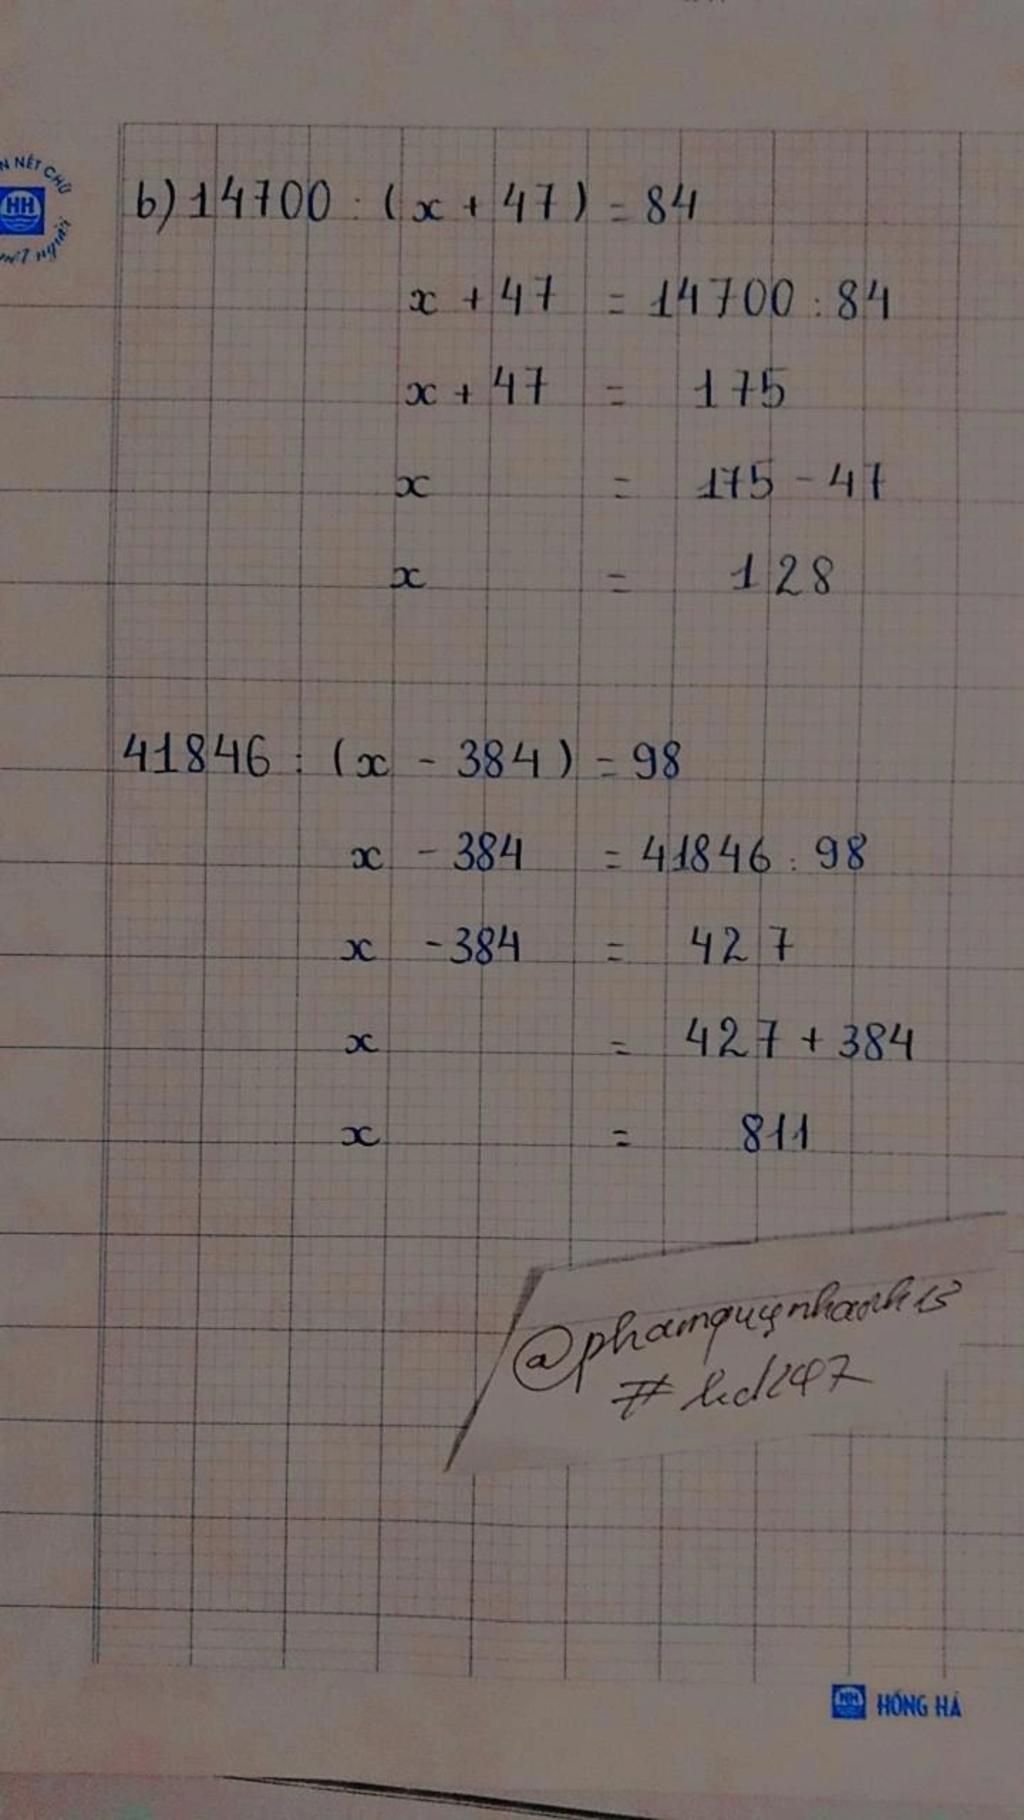 N NÉT CHỮ
HH
b) 14700 : (x + 47) = 84
x + 47 = 14700 : 84
x + 47 = 175
x = 175 - 47
x = 128
41846 : (x - 384) = 98
x - 384 = 41846 : 98
x - 384 = 427
x = 427 + 384
x = 811
@phamquynhanh13
HH HỒNG HÀ